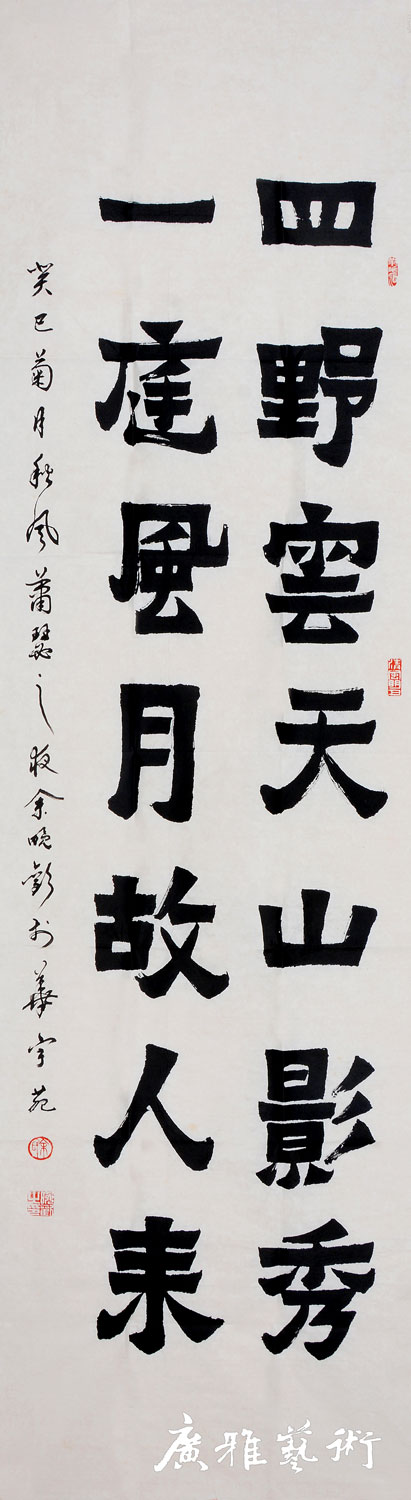 四野雲天山影秀
一庭風月故人来
癸巳菊月秋風蕭瑟之夜余晚彭於華宇苑
廣雅藝術